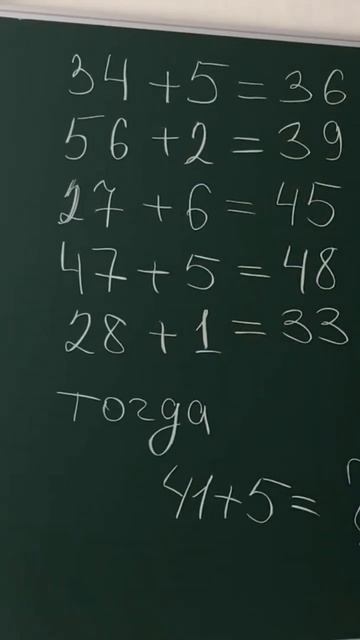 34 + 5 = 36
56 + 2 = 39
27 + 6 = 45
47 + 5 = 48
28 + 1 = 33
тогда
41 + 5 = ?